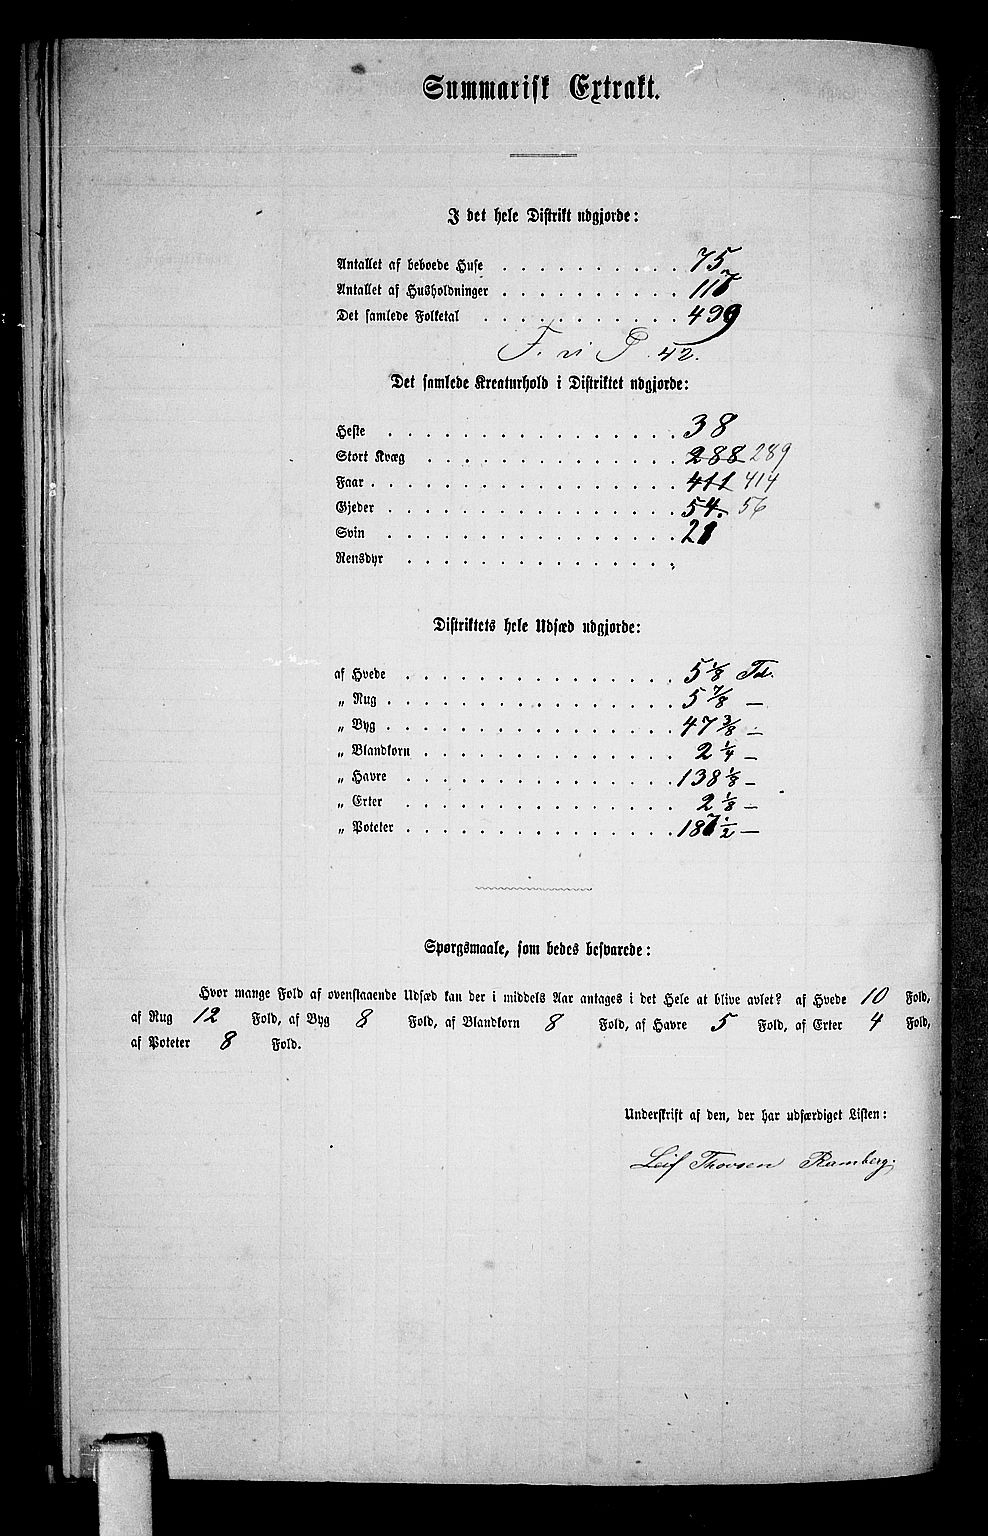 Summarisk Extrakt.
I det hele Distrikt udgjorde:
Antallet af beboede Huse . . . . . . . . . . 75
Antallet af Husholdninger . . . . . . . . . . 117
Det samlede Folketal . . . . . . . . . . . 499
F. vi P. 42.
Det samlede Kreaturhold i Distriktet udgjorde:
Heste . . . . . . . . . . . . . . . . 38
Stort Kvæg . . . . . . . . . . . . . . 288 289
Faar . . . . . . . . . . . . . . . . . 411 414
Gjeder . . . . . . . . . . . . . . . . 54. 56
Svin . . . . . . . . . . . . . . . . 21
Rensdyr . . . . . . . . . . . . . . . „
Distriktets hele Udsæd udgjorde:
af Hvede . . . . . . . . . . . . . . . 5 1/8 Td.
„ Rug . . . . . . . . . . . . . . . . 5 7/8 —
„ Byg . . . . . . . . . . . . . . . . 47 3/8 —
„ Blandkorn . . . . . . . . . . . . . . 2 1/4 —
„ Havre . . . . . . . . . . . . . . . 138 1/8 —
„ Erter . . . . . . . . . . . . . . . 2 1/8 —
„ Poteter . . . . . . . . . . . . . . . 187 1/2 —
Spørgsmaale, som bedes besvarede:
Hvor mange Fold af ovenstaaende Udsæd kan der i middels Aar antages i det Hele at blive avlet? af Hvede 10 Fold,
af Rug 12 Fold, af Byg 8 Fold, af Blandkorn 8 Fold, af Havre 5 Fold, af Erter 4 Fold,
af Poteter 8 Fold.
Underskrift af den, der har udfærdiget Listen:
Leif Thovsen Ramberg.